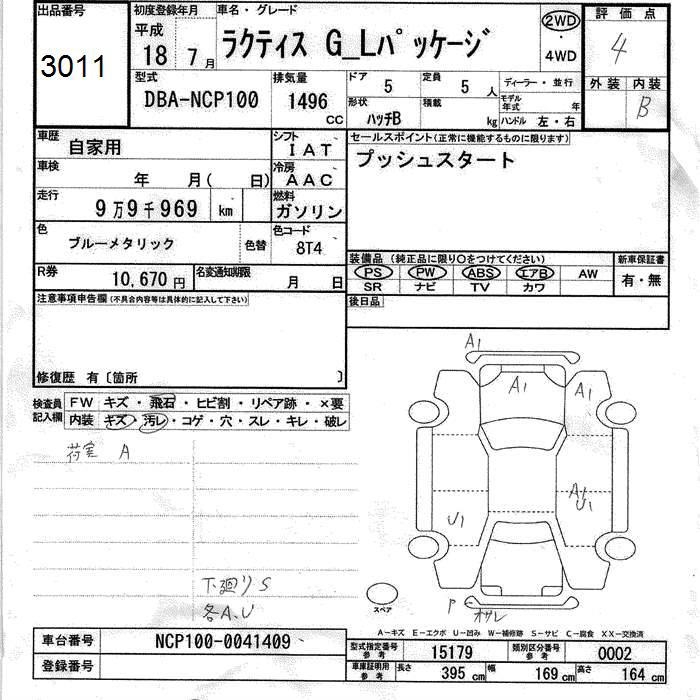 出品番号
3011
初度登録年月
平成
18 7月
車名・グレード
ラクティス G_Lパッケージ
2WD
・
4WD
評価点
4
外装 内装
B
型式
DBA-NCP100
排気量
1496
CC
ドア
5
定員
5 人
形状
ハッチB
積載
kg
ディーラー・並行
モデル年式 年
ハンドル 左・右
車歴
自家用
シフト
IAT
車検
年 月( 日)
冷房
AAC
走行
9万9千969 km
燃料
ガソリン
色
ブルーメタリック
色替
色コード
8T4
R券
10,670円
名変通知期限
月 日
セールスポイント(正常に機能するものに限ります)
プッシュスタート
装備品(純正品に限り○をつけてください)
新車保証書
PS PW ABS エアB AW
有・無
SR ナビ TV カワ
後日品
注意事項申告欄(不具合内容等は具体的に記入して下さい)
修復歴 有〔箇所 〕
検査員
記入欄
FW キズ・飛石・ヒビ割・リペア跡・×要
内装 キズ・汚レ・コゲ・穴・スレ・キレ・破レ
荷室 A
下廻りS
各A、U
A1
A1
A1
A1
U1
U1
P
オサレ
スペア
A-キズ E-エクボ U-凹み W-補修跡 S-サビ C-腐食 XX-交換済
車台番号
NCP100-0041409
登録番号
型式指定番号
参考
15179
類別区分番号
参考
0002
車庫証明用
参考
長さ
395 cm
幅
169 cm
高さ
164 cm